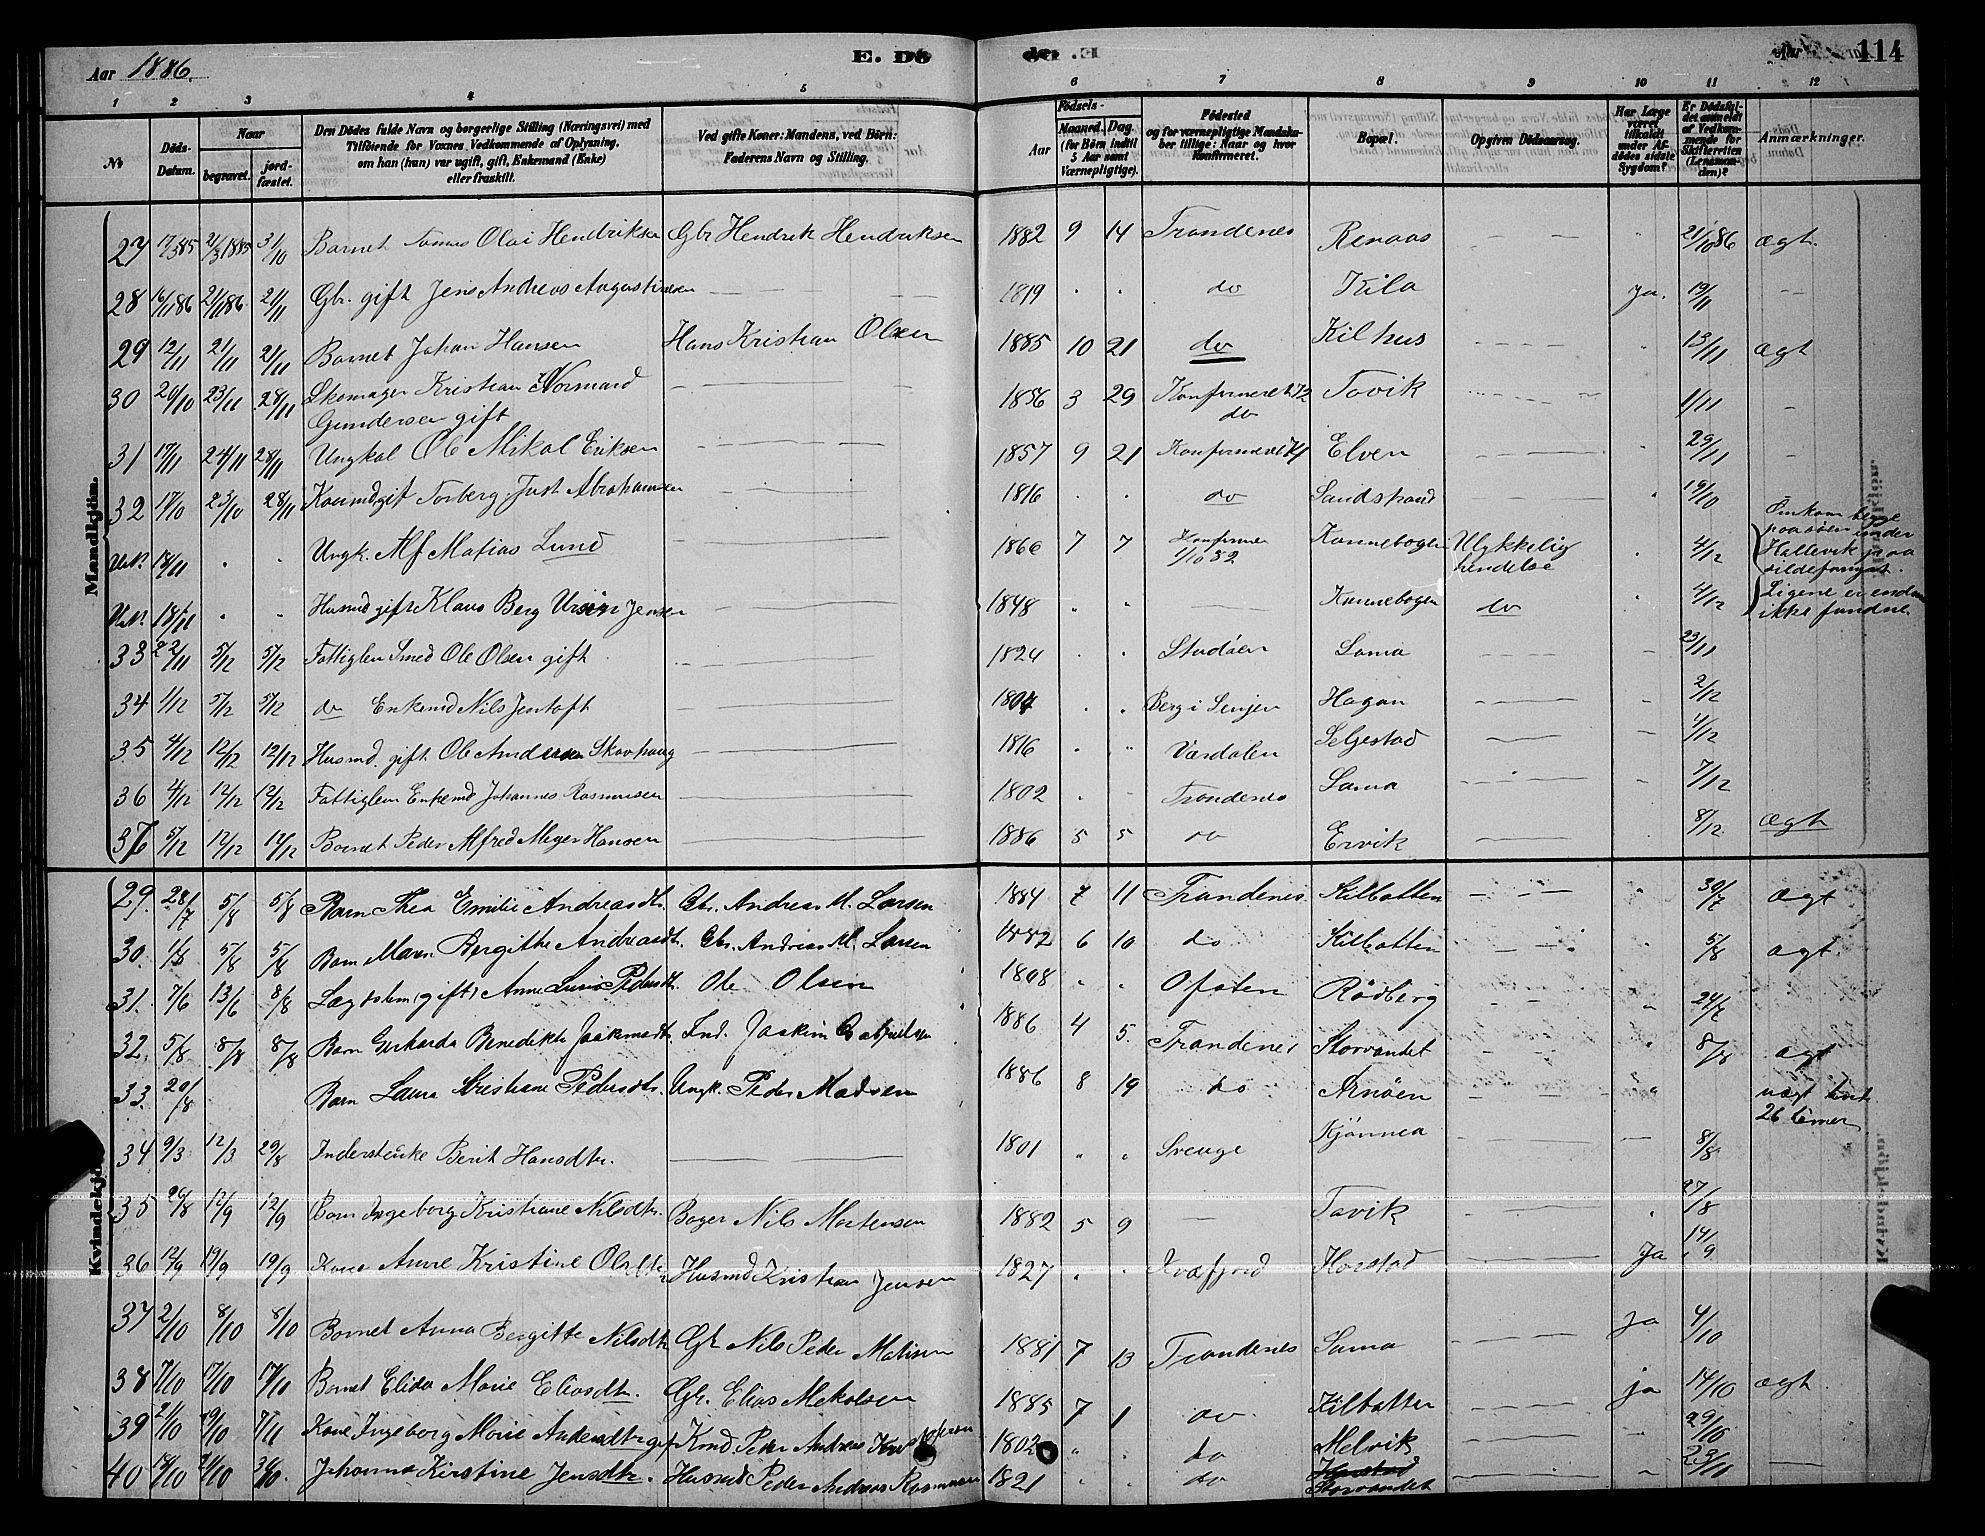 Aar 1886. E. Dö 114
1 2 3 4 5 6 7 8 9 10 11 12
No
Döds-Datum.
Naar
begravet.
jordfæstet.
Den Dödes fulde Navn og borgerlige Stilling (Næringsvei) med
Tilföiende for Voxnes Vedkommende af Oplysning,
om han (hun) var ugift, gift, Enkemand (Enke)
eller fraskilt.
Ved gifte Koner: Mandens, ved Börn:
Faderens Navn og Stilling.
Födsels-
Aar
Maaned. Dag.
(for Börn indtil
5 Aar samt
Værnepligtige).
Födested
og for værnepligtige Mandska-
ber tillige: Naar og hvor
Konfirmeret.
Bopæl.
Opgiven Dödsaarsag.
Har Læge
været
tilkaldt
under Af-
dödes sidste
Sygdom?
Er Dödsfal-
det anmeldt
af Vedkom-
mende for
Skifteretten
(Lensman-
den)?
Anmærkninger.
Mandkjön.
27 17/3 85 21/3 1885 31/10 Barnet Tomas Olai Hendriksen Gbr Hendrik Hendriksen 1882 9 14 Trondenes Renaas 21/10 86 ægt.
28 16/11 86 21/11 86 21/11 Gbr. gift Jens Andreas Augustinsen 1819 do Kila Ja. 19/11
29 12/11 21/11 21/11 Barnet Johan Hansen Hans Kristian Olsen 1885 10 21 do Kilhus 13/11 ægt
30 29/10 23/11 28/11 Skomager Kristian Normand
Gundersen gift 1856 3 29 Konfirmeret 72
do Tovik 1/11
31 17/11 24/11 28/11 Ungkal Ole Mikal Eriksen 1857 9 21 Konfirmeret 71 Elven 29/11
32 17/10 23/10 28/11 Kaarmd gift Torberg Just Abrahamsen 1816 do Sandstrand 19/10
18/11 Ungk. Alf Matias Lund 1866 7 7 Konfirmer
1/10 82 Kannebogen Ulykkelig
hendelse 4/12 Omkom begge
paa söen under
Hallevik paa
sildefangst.
18/11 Husmd gift Klaus Berg Ursin Jensen 1848 Kannebogen do 4/12 Ligene er endnu
ikke fundne
33 22/11 5/12 5/12 Fattiglem Smed Ole Olsen gift 1824 Stadöen Sama 23/11
34 1/12 5/12 5/12 do Enkemd Nils Jentoft 1804 Berg i Senjen Hagan 2/12
35 4/12 12/12 12/12 Husmd. gift Ole Andersen Skovhaug 1816 Værdalen Seljestad 4/12
36 4/12 12/12 12/12 Fattiglem Enkemd Johannes Rasmusen 1802 Trondenes Sama 7/12
37 5/12 12/12 12/12 Barnet Peder Alfred Meyer Hansen 1886 5 5 do Ervik 8/12 ægt
Kvindekjön.
29. 28/7 5/8 5/8 Barn Thea Emilie Andreasdt. Gbr. Andreas M. Larsen 1884 7 11 Trondenes Kilbotten 30/7 ægt
30. 1/8 5/8 5/8 Barn Maren Bergitte Andreasdt. Gbr. Andreas M. Larsen 1882 6 10 do Kilbotten 5/8 ægt.
31. 7/6 13/6 8/8 Lægdslem (gift) Anne Pedersdt. Ole Olsen 1808 Ofoten Rödberg 24/7
32. 5/8 8/8 8/8 Barn Gerharda Benedikte Joakimsdt. Ind. Joakim 1886 4 5. Trondenes Storvandet 8/8 ægt
33. 20/8 Barn Laura Kristiane Pedersdt. Ungk. Peder Madsen 1886 8 19 do Arnöen uægt
26 timer
34 9/3 12/3 29/8 Inderstenke Berit Hansdtr. 1801 Sverige Kjönnea 8/8
35 26/8 12/9 12/9 Barn Ingeborg Kristiane Nilsdtr. Boger Nils Mortensen 1882 5 9 Tovik 27/8
36 12/9 19/9 19/9 Kone Anne Kristine Olsdtr Husmd Kristian Jensen 1827 Kvæfjord Harstad Ja 14/9
37 2/10 8/10 8/10 Barnet Anna Bergitte Nilsdtr Gbr Nils Peder Matisen 1881 7 13 Trondenes Sama ja 4/10
38 7/10 17/10 17/10 Barnet Elida Marie Eliasdtr. Gbr. Elias Mekalsen 1885 7 1 do Kilbotten ja 14/10 ægt.
39 21/10 29/10 7/11 Kone Ingeborg Marie Andersdtr gift Kmd Peder Andreas 1802 do Melvik 29/10
40 18/10 24/10 30/10. Johanna Kirstine Jensdtr. Husmd Peder Andreas Rasmussen 1821 do Harstad
Storvandet 23/11